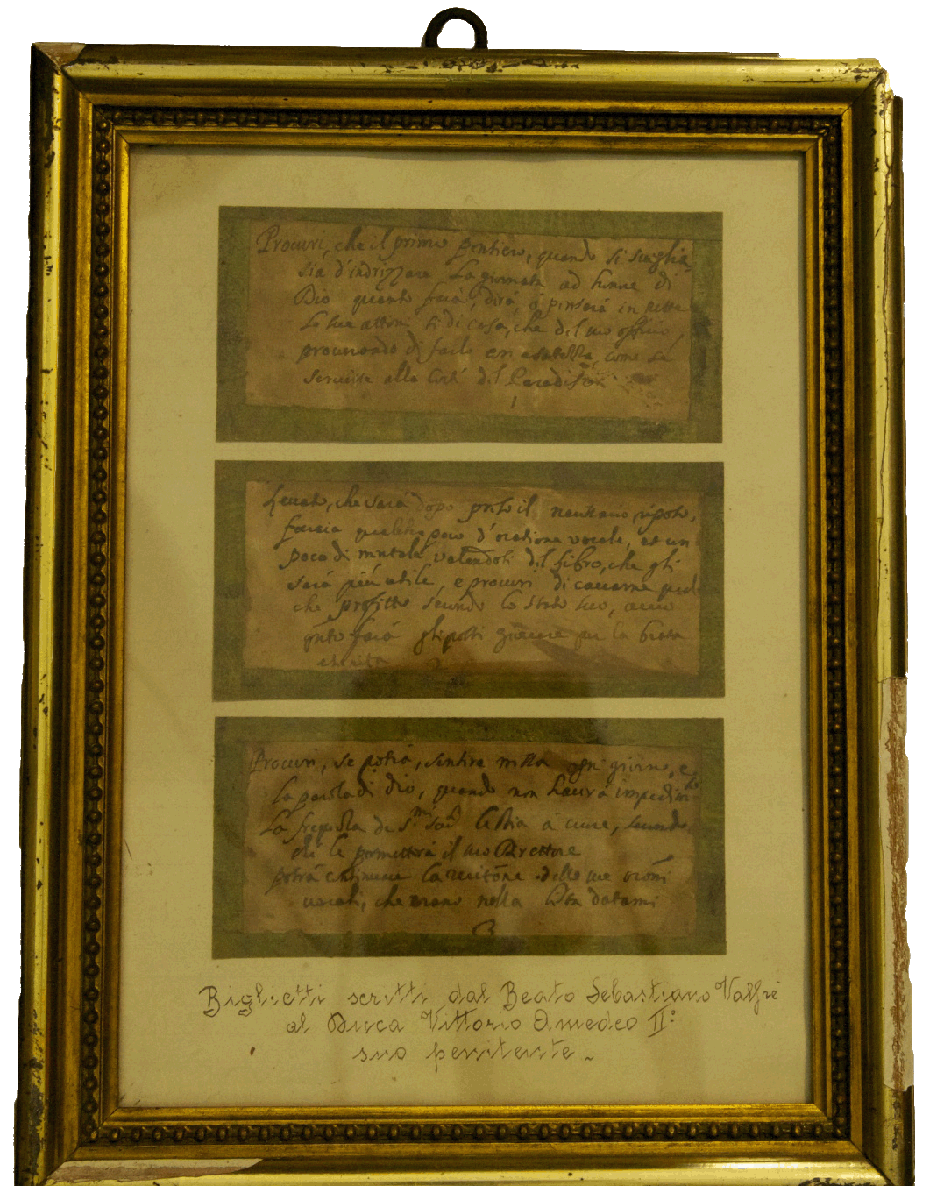 Procuri, che il primo pensiero, quando si sveglia
sia d'indrizzare la giornata ad honore di
Dio quanto farà, dirà, o penserà in tutte
le sue attioni di casa, che del suo officio,
procurando di farlo con esattezza, come
servisse alla Corte del Paradiso
Levato, che sarà dopo il necessario riposo,
faccia qualche poco d'oratione vocale, et un
poco di mentale valendosi del libro, che gli
sarà più utile, e procuri di cavarne qual
che profitto secondo lo stato suo,
farà gl'istessi per la
Procuri, se potrà, sentire messa ogni giorno, e
la parola di Dio, quando non haverà
La frequenza de lascia a cuore, secondo
che le permetterà il suo Direttore
potrà continuare la delle sue
vocali, che erano nella datami
3
Biglietti scritti dal Beato Sebastiano Valfré
al Duca Vittorio Amedeo II°
suo penitente.